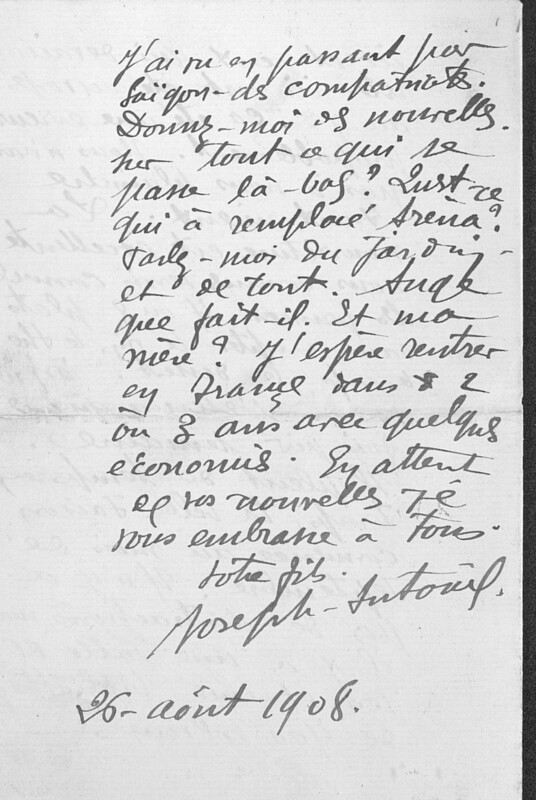 J'ai vu en passant par
Saïgon - des compatriotes.
Donnez-moi des nouvelles.
sur tout ce qui se
passe là-bas? Qu'est-ce
qui à remplacé Aréna?
Parlez-moi du Jardin -
et de tout. Ange
que fait-il. Et ma
mère? J'espère rentrer
en France dans 2
où 3 ans avec quelques
économies En attent
de vos nouvelles je
vous embrasse à tous.
votre fils.
Joseph-Antoine.
26 - août 1908.